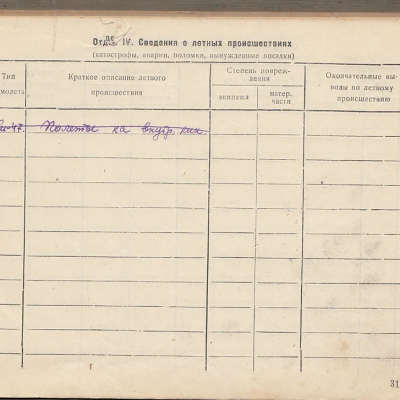 Отдел IV. Сведения о летных происшествиях
(катастрофы, аварии, поломки, вынужденные посадки)
Тип
молета
Краткое описание летного
происшествия
Степень повреж-
дения
экипажа
матер.
части
Окончательные вы-
воды по летному
происшествию
Полеты на внутр. лин.
31